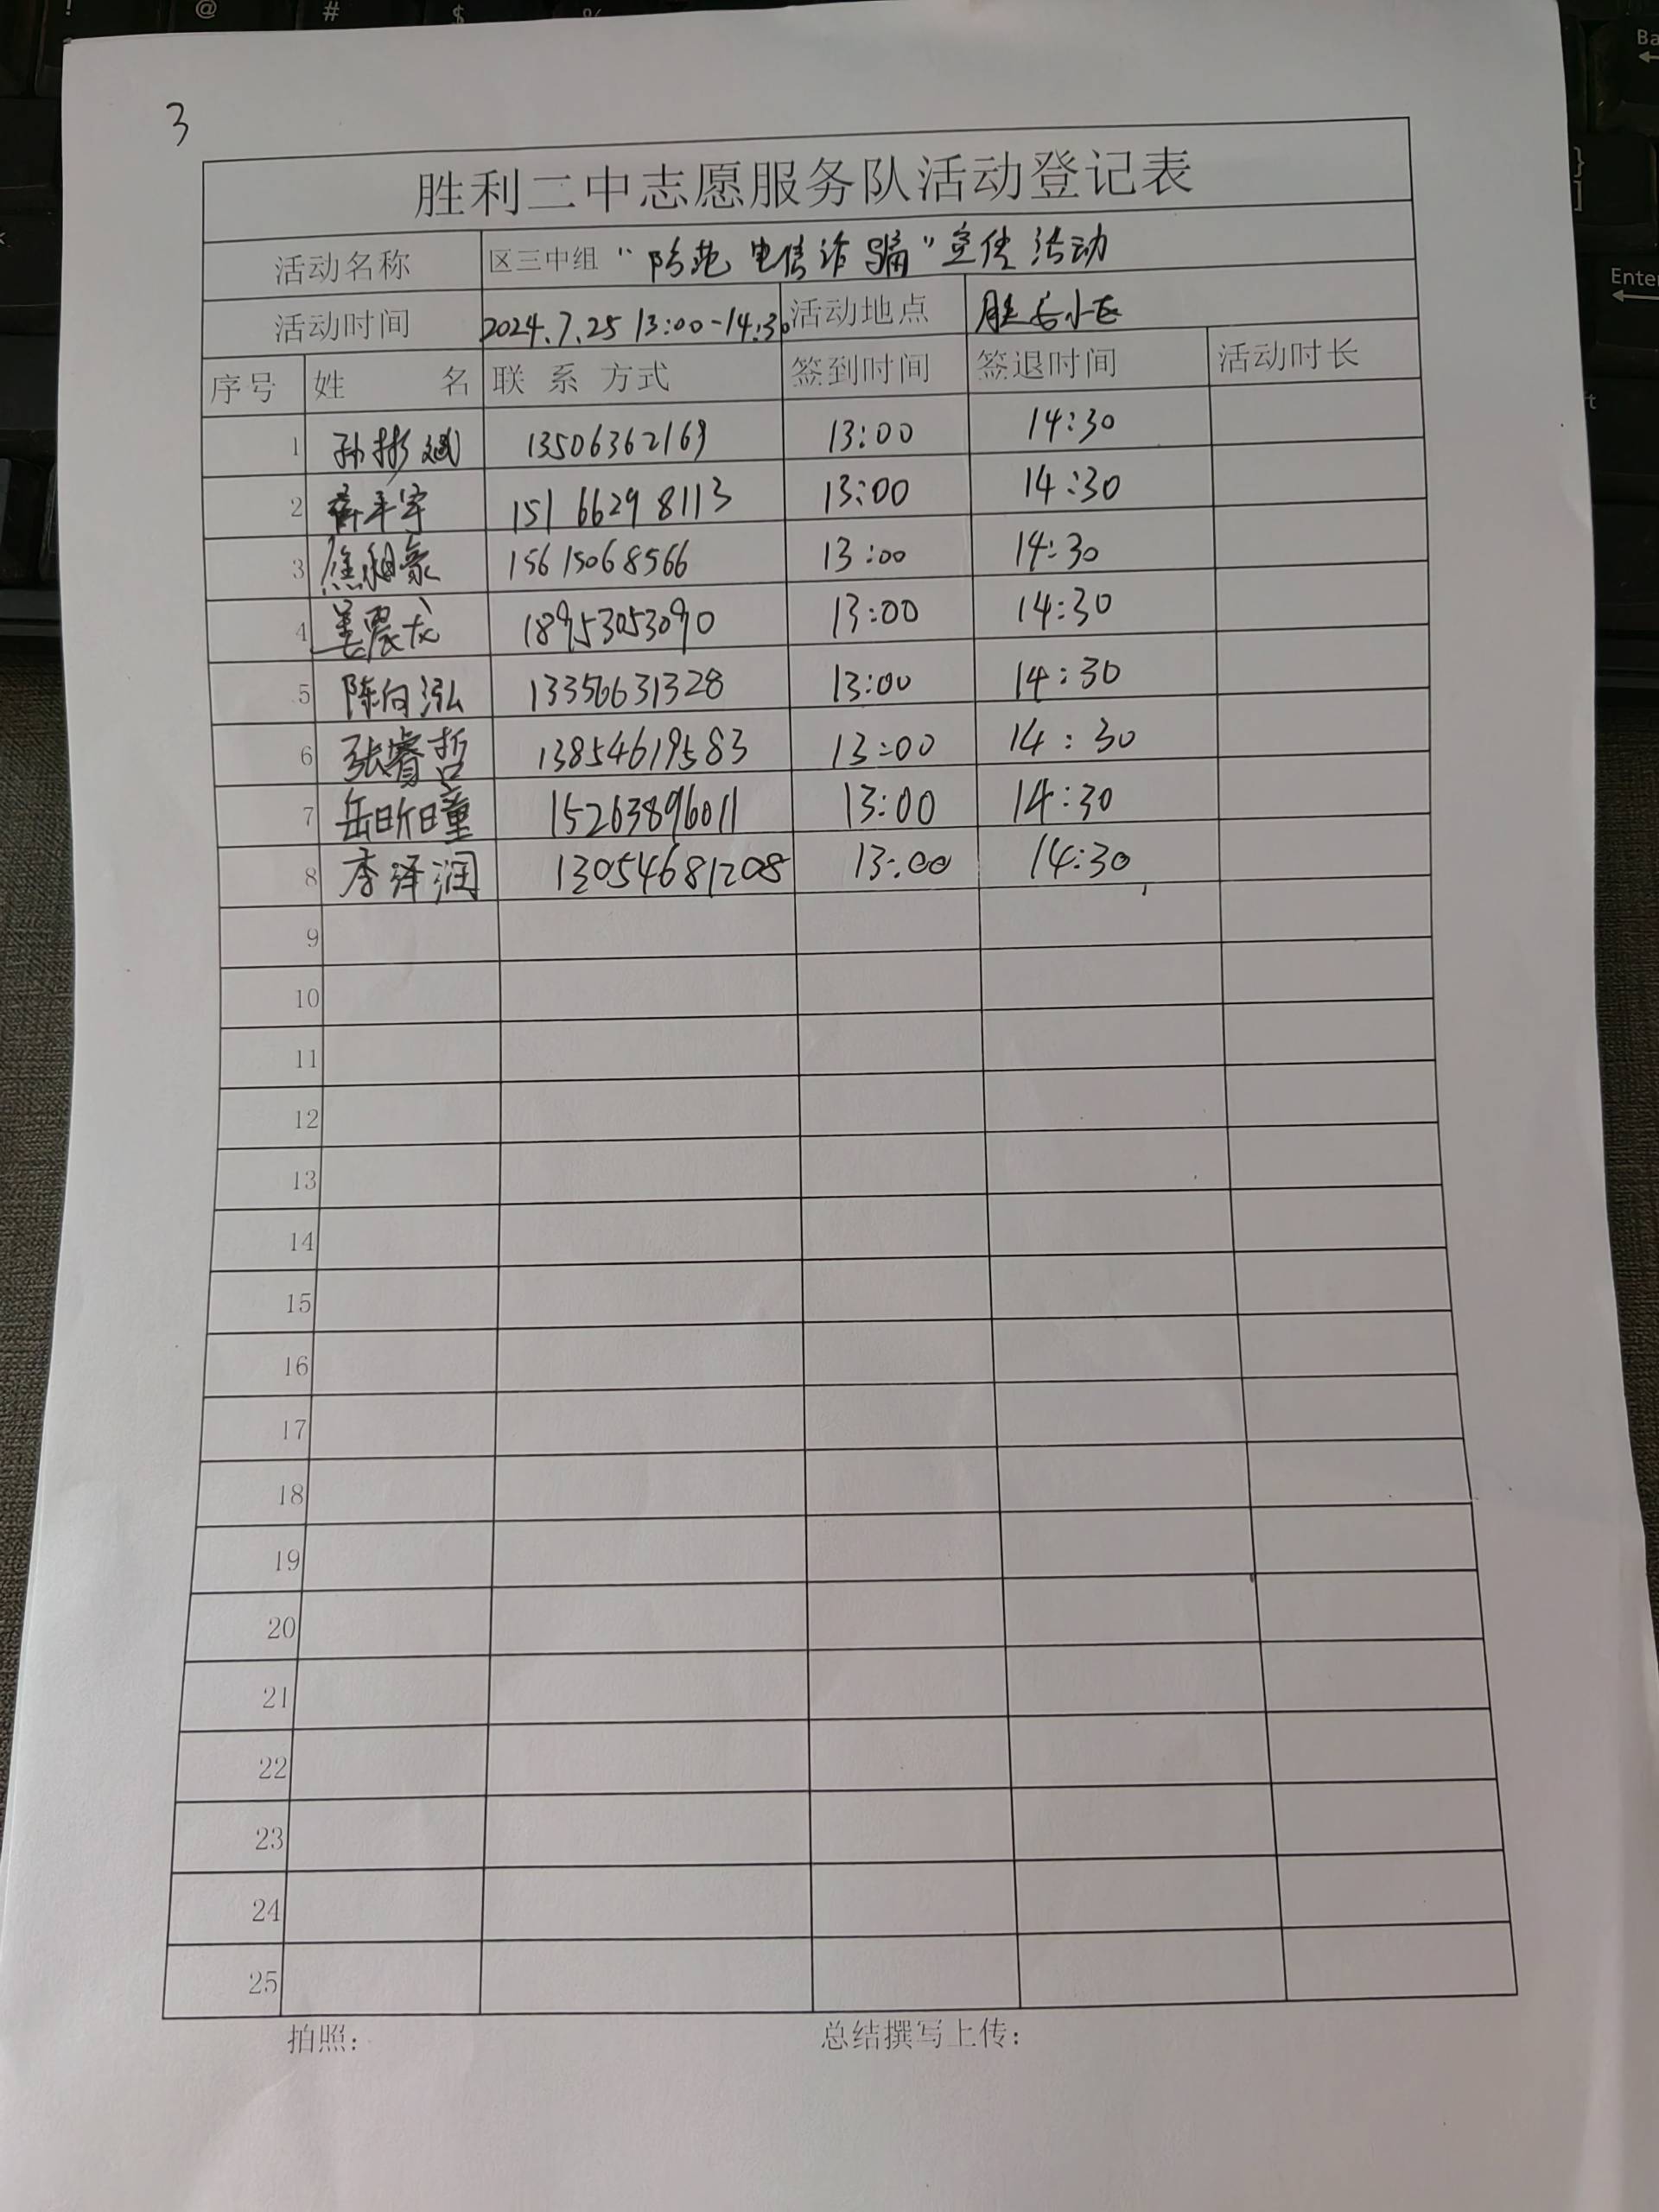 3
胜利二中志愿服务队活动登记表
活动名称 区三中组 "防范电信诈骗"宣传活动
活动时间 2024.7.25 13:00-14:30 活动地点 胜舌小区
序号 姓名 联系方式 签到时间 签退时间 活动时长
1 孙彬斌 13506362169 13:00 14:30
2 15166298113 13:00 14:30
3 15615068566 13:00 14:30
4 姜震龙 18953053090 13:00 14:30
5 陈向泓 13356631328 13:00 14:30
6 张睿哲 13854619583 13:00 14:30
7 岳昕瞳 15263896011 13:00 14:30
8 李泽润 13054681208 13:00 14:30
9
10
11
12
13
14
15
16
17
18
19
20
21
22
23
24
25
拍照: 总结撰写上传: